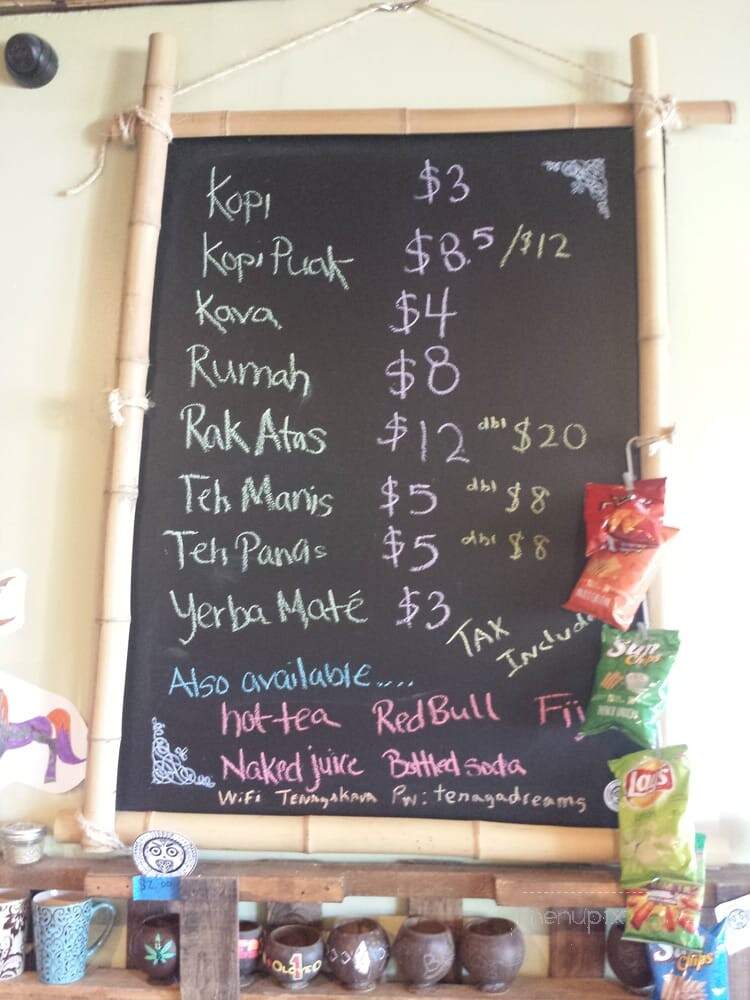 Kopi $3
Kopi Puak $8.5 /$12
Kava $4
Rumah $8
Rak Atas $12 dbl $20
Teh Manis $5 dbl $8
Teh Panas $5 dbl $8
Yerba Maté $3
TAX
Includ
Also available....
hot tea Red Bull Fij
Naked juice Bottled soda
WiFi Tenagakava Pw: tenagadreams
Sun
Chips
Lay's
$2.00
menupix
Sun
Chips